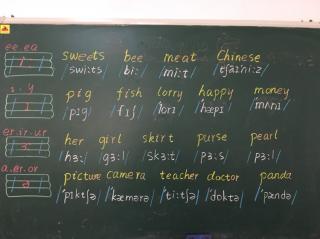 ee.ea sweets bee meat Chinese
/swi:ts/ /bi:/ /mi:t/ /tʃaɪ'ni:z/
i.y pig fish lorry happy money
ɪ /pɪg/ /fɪʃ/ /'lɒrɪ/ /'hæpɪ/ /'mʌnɪ/
er.ir.ur her girl skirt purse pearl
ɜ: /hɜ:/ /gɜ:l/ /skɜ:t/ /pɜ:s/ /pɜ:l/
a.er.or picture camera teacher doctor panda
ə /'pɪktʃə/ /'kæmərə/ /'ti:tʃə/ /'dɒktə/ /'pændə/